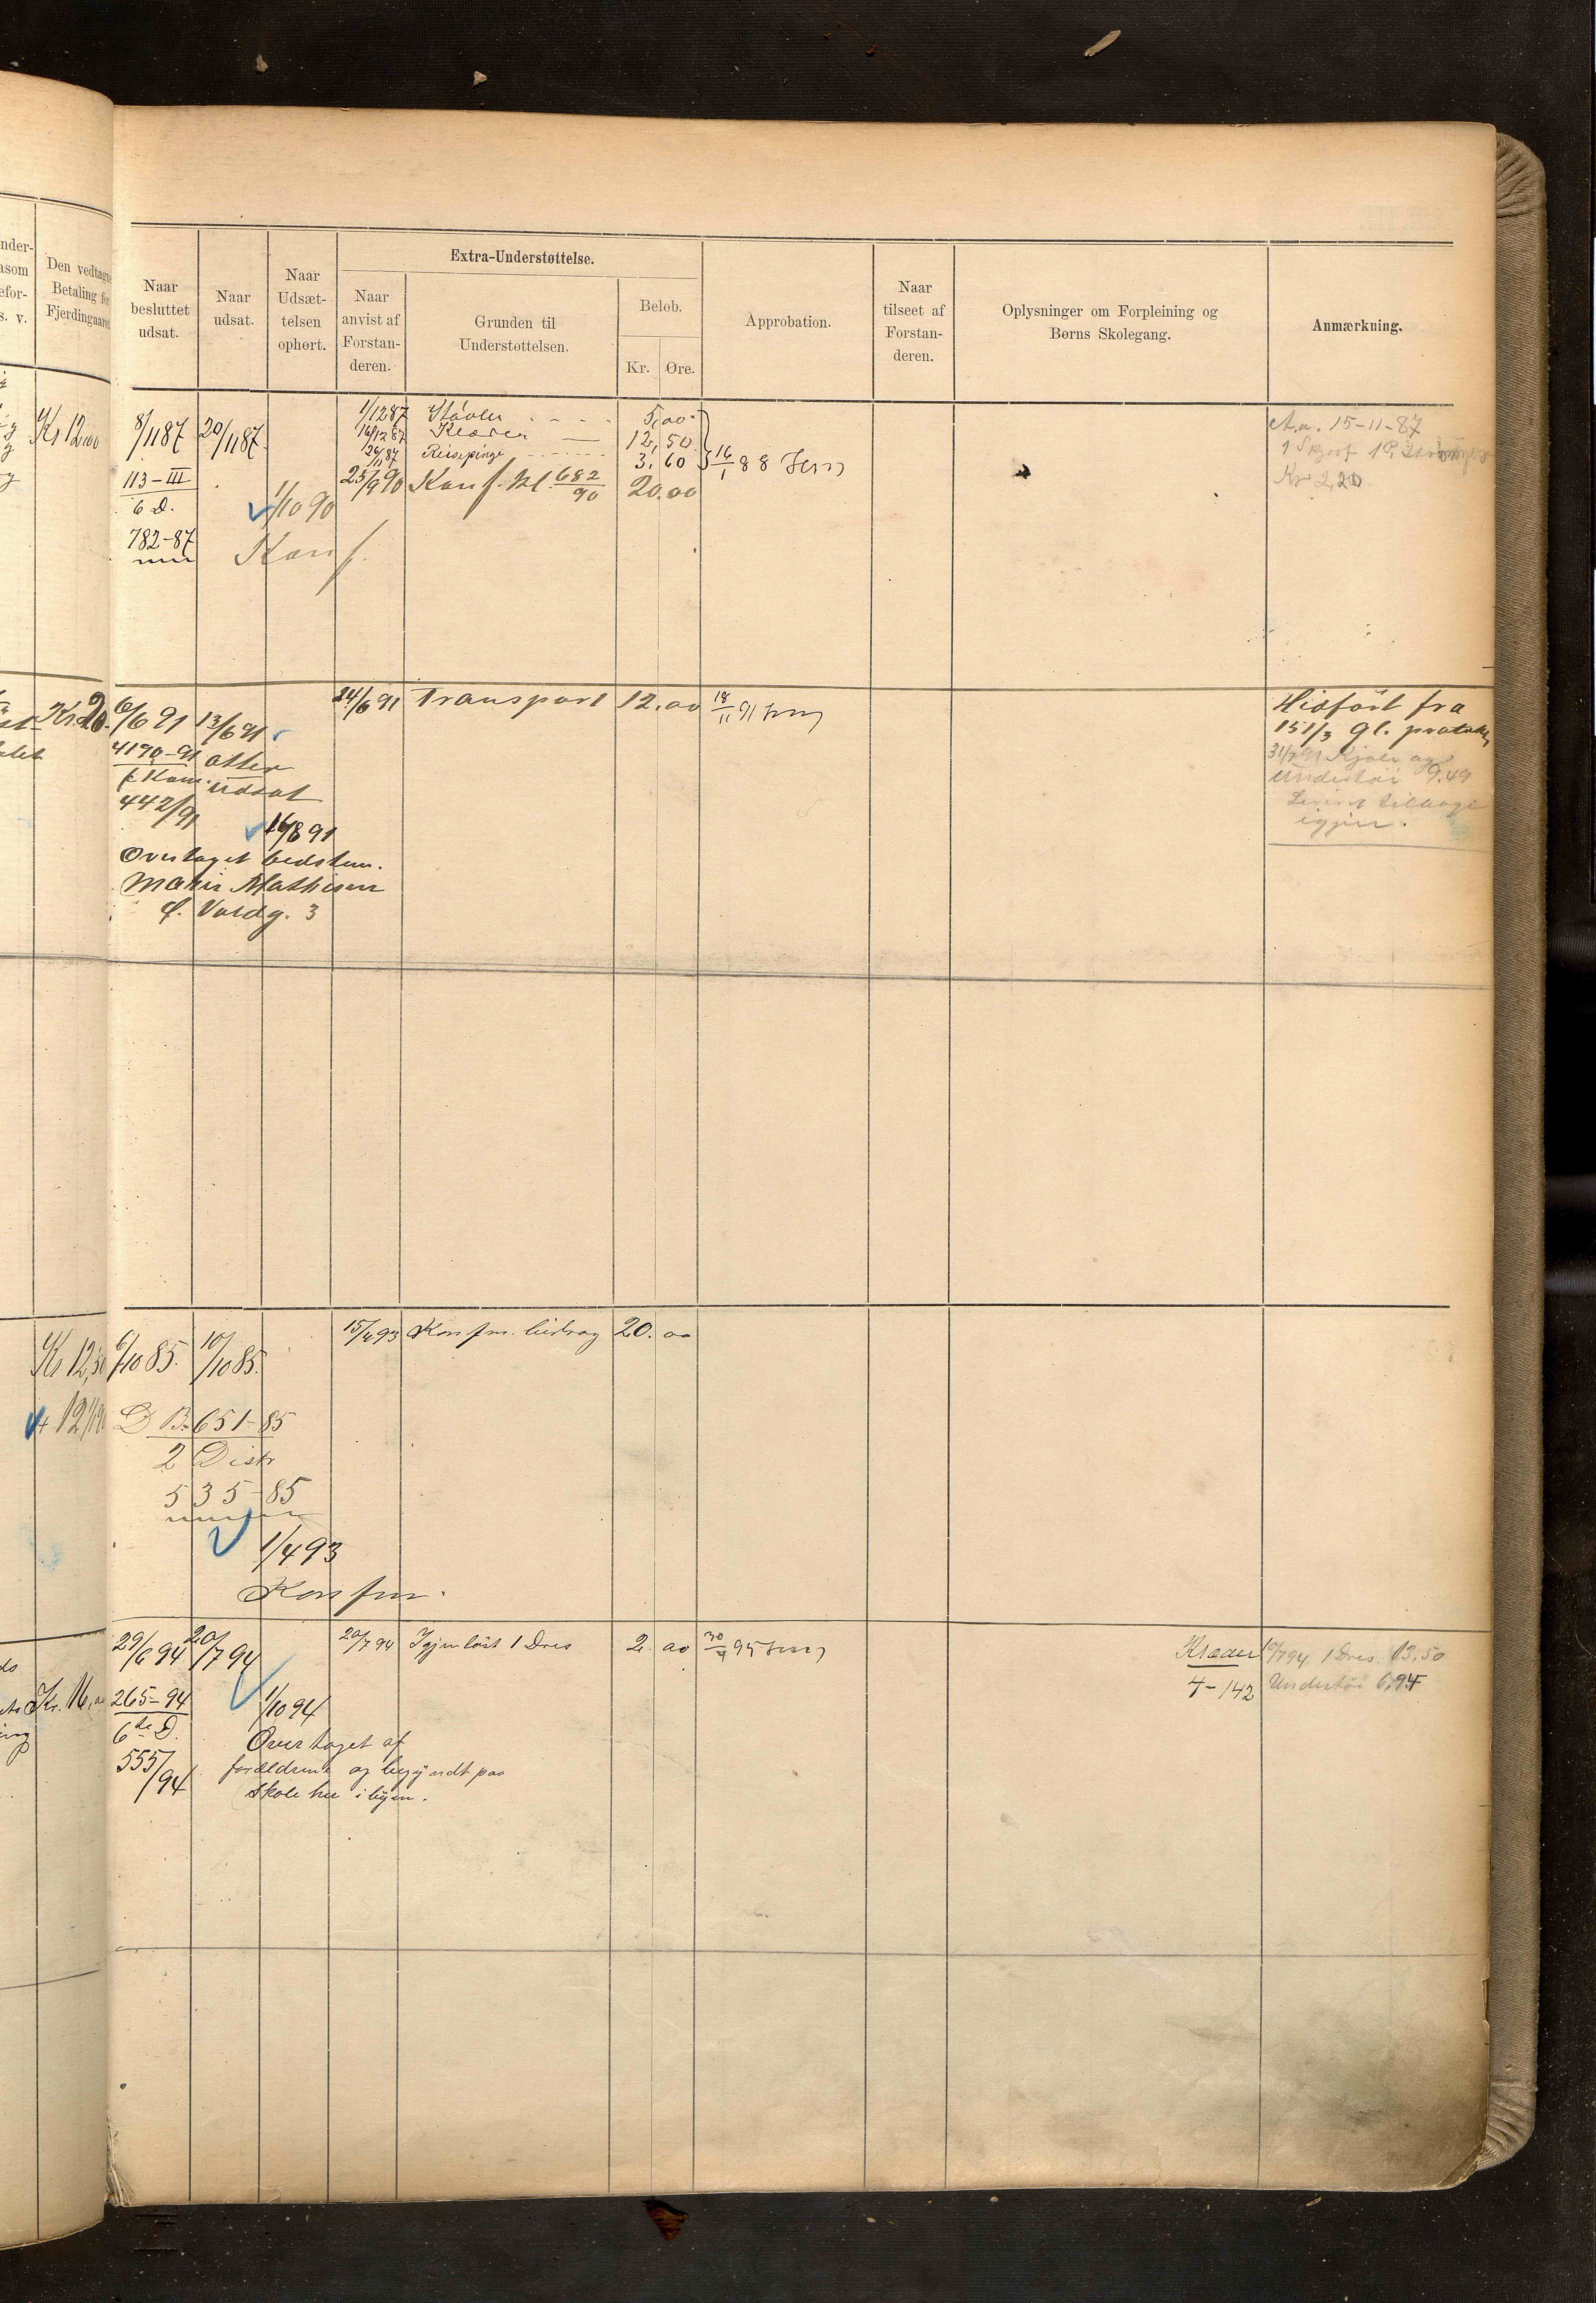 nder-
asom
efor-
s. v.
Den vedtagne
Betaling for
Fjerdingaaret
Naar
besluttet
udsat.
Naar
udsat.
Naar
Udsæt-
telsen
ophørt.
Extra-Understøttelse.
Naar
anvist af
Forstan-
deren.
Grunden til
Understøttelsen.
Beløb.
Kr.
Øre.
Approbation.
Naar
tilseet af
Forstan-
deren.
Oplysninger om Forpleining og
Børns Skolegang.
Anmærkning.
Kr 12,00
8/11 87
20/11 87
1/12 87 Støvler 5,00
16/12 87 Klæder 12,50
26/11 87 Reisepenge 3,60
16/1 88
23/9 90 Konf. kl. 682/90 20,00
113-III
6 D.
1/10 90
782-87
Konf.
A.a. 15-11-87
1 Skjorf 1 P.
Kr 2,20
Kr. 20.
6/6 91
13/6 91
24/6 91 Transport 12.00
18/11 91
Hidført fra
151/3 gl. protokol
4190-91
atter
udsat
442/91
16/8 91
Overtaget bedstem.
Marie Mathisen
Ø. Voldg. 3
31/7 91 Kjole og
Undertøi 9.49
Leveret tilbage
igjen.
Kr 12,50
6/10 85.
10/10 85.
15/4 93 Konfm. bidrag 20.00
D B. 651-85
2 Distr
535-85
1/4 93
Konfm.
29/6 94
20/7 94
20/7 94 Igjenløst 1 Dres 2.00
Klæder
4-142
1 Dres 13.50
Undertøi 6,94
Kr. 16,00
265-94
6te D.
555/94
1/10 94
Overtaget af
forældrene og begyndt paa
Skole her i byen.